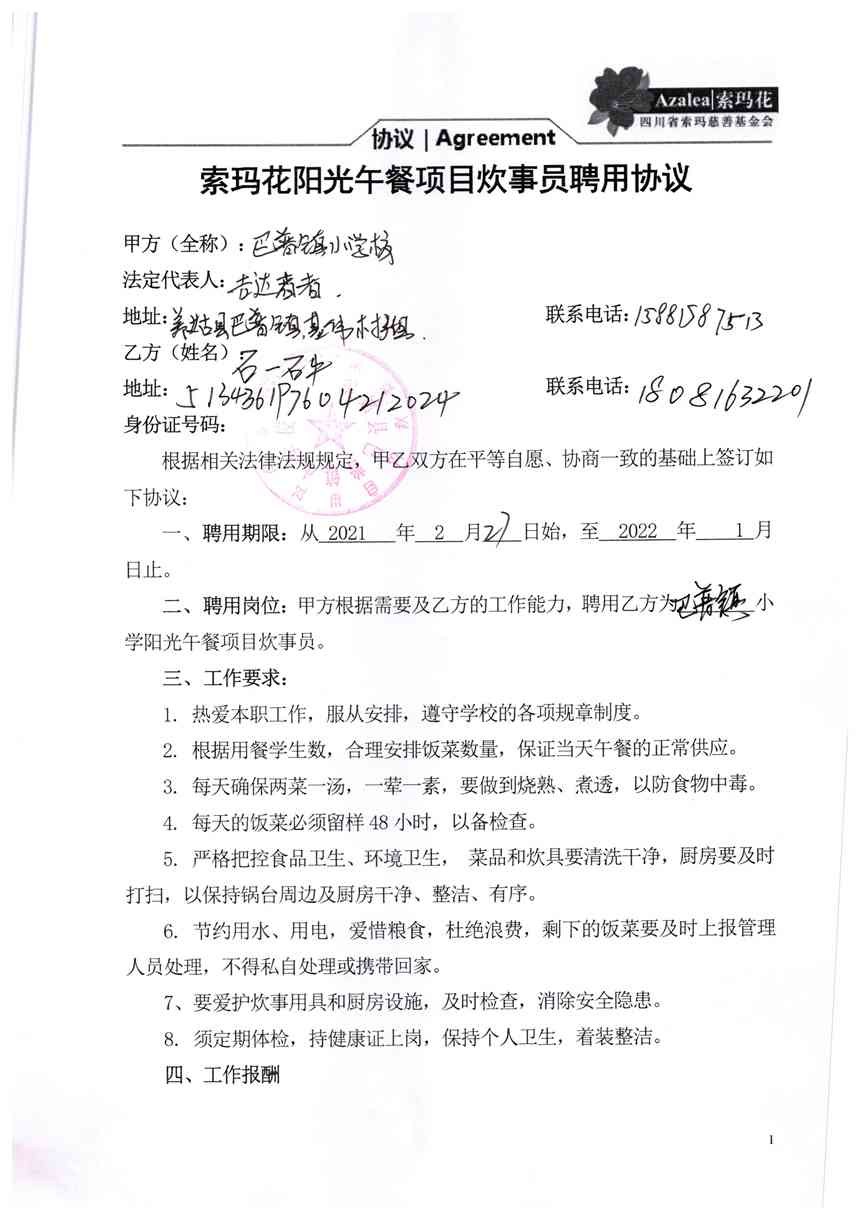 Azalea|索玛花
四川省索玛慈善基金会
协议 | Agreement
索玛花阳光午餐项目炊事员聘用协议
甲方（全称）：巴普镇小学校
法定代表人：吉达
地址：美姑县巴普镇 联系电话：15881587513
乙方（姓名）：石一石牛
地址：513436197604212024 联系电话：18081632201
身份证号码：
根据相关法律法规规定，甲乙双方在平等自愿、协商一致的基础上签订如
下协议：
一、聘用期限：从 2021 年 2 月 27 日始，至 2022 年 1 月
日止。
二、聘用岗位：甲方根据需要及乙方的工作能力，聘用乙方为巴普镇 小
学阳光午餐项目炊事员。
三、工作要求：
1. 热爱本职工作，服从安排，遵守学校的各项规章制度。
2. 根据用餐学生数，合理安排饭菜数量，保证当天午餐的正常供应。
3. 每天确保两菜一汤，一荤一素，要做到烧熟、煮透，以防食物中毒。
4. 每天的饭菜必须留样 48 小时，以备检查。
5. 严格把控食品卫生、环境卫生， 菜品和炊具要清洗干净，厨房要及时
打扫，以保持锅台周边及厨房干净、整洁、有序。
6. 节约用水、用电，爱惜粮食，杜绝浪费，剩下的饭菜要及时上报管理
人员处理，不得私自处理或携带回家。
7、要爱护炊事用具和厨房设施，及时检查，消除安全隐患。
8. 须定期体检，持健康证上岗，保持个人卫生，着装整洁。
四、工作报酬
1